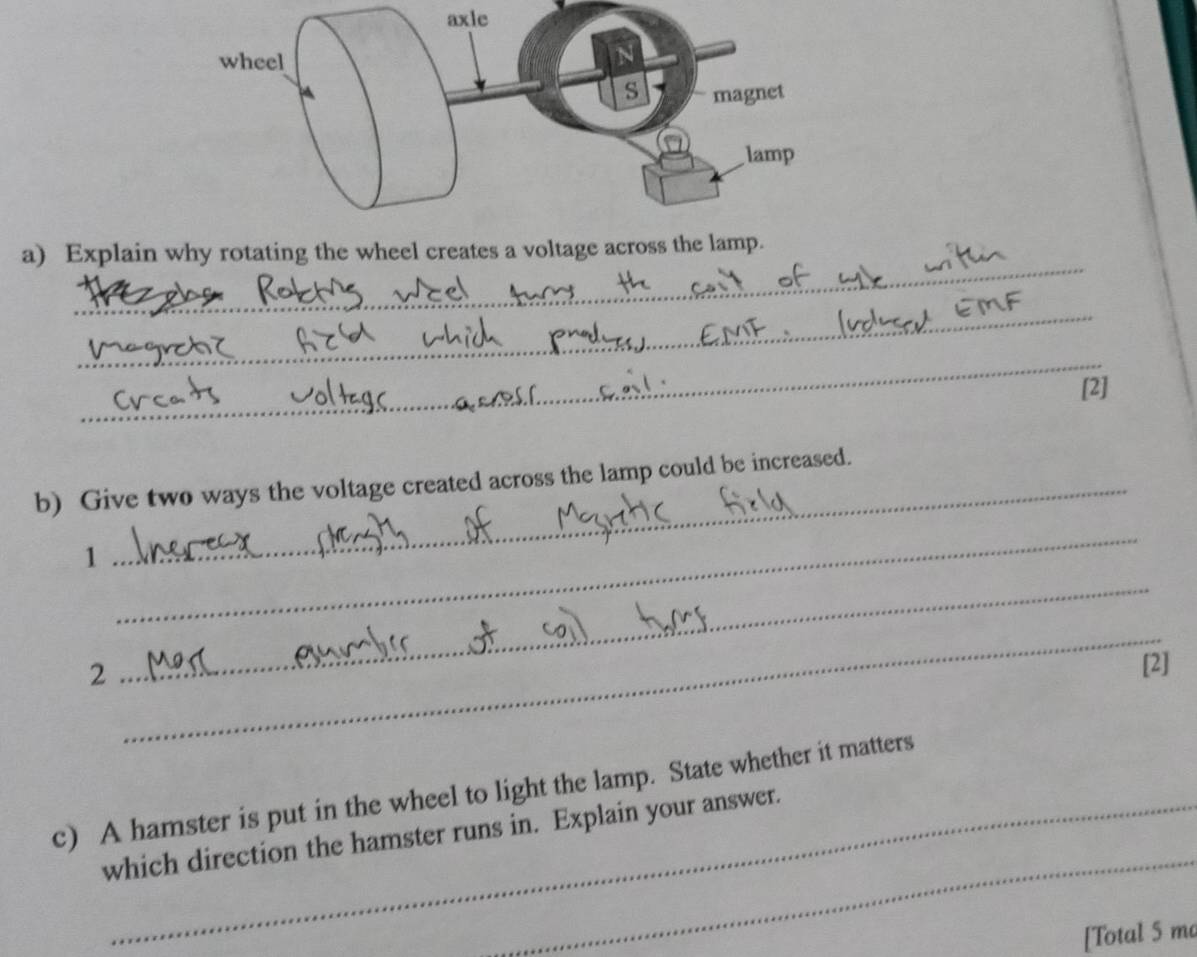 axle
wheel
N
S
magnet
lamp
a) Explain why rotating the wheel creates a voltage across the lamp.
Rotating wheel turns the coil of wire within
magnetic field which produces EMF. Induced EMF
creats voltage across coil.
[2]
b) Give two ways the voltage created across the lamp could be increased.
1 Increase strength of Magnetic field
2 More number of coil turns
[2]
c) A hamster is put in the wheel to light the lamp. State whether it matters
which direction the hamster runs in. Explain your answer.
[Total 5 ma